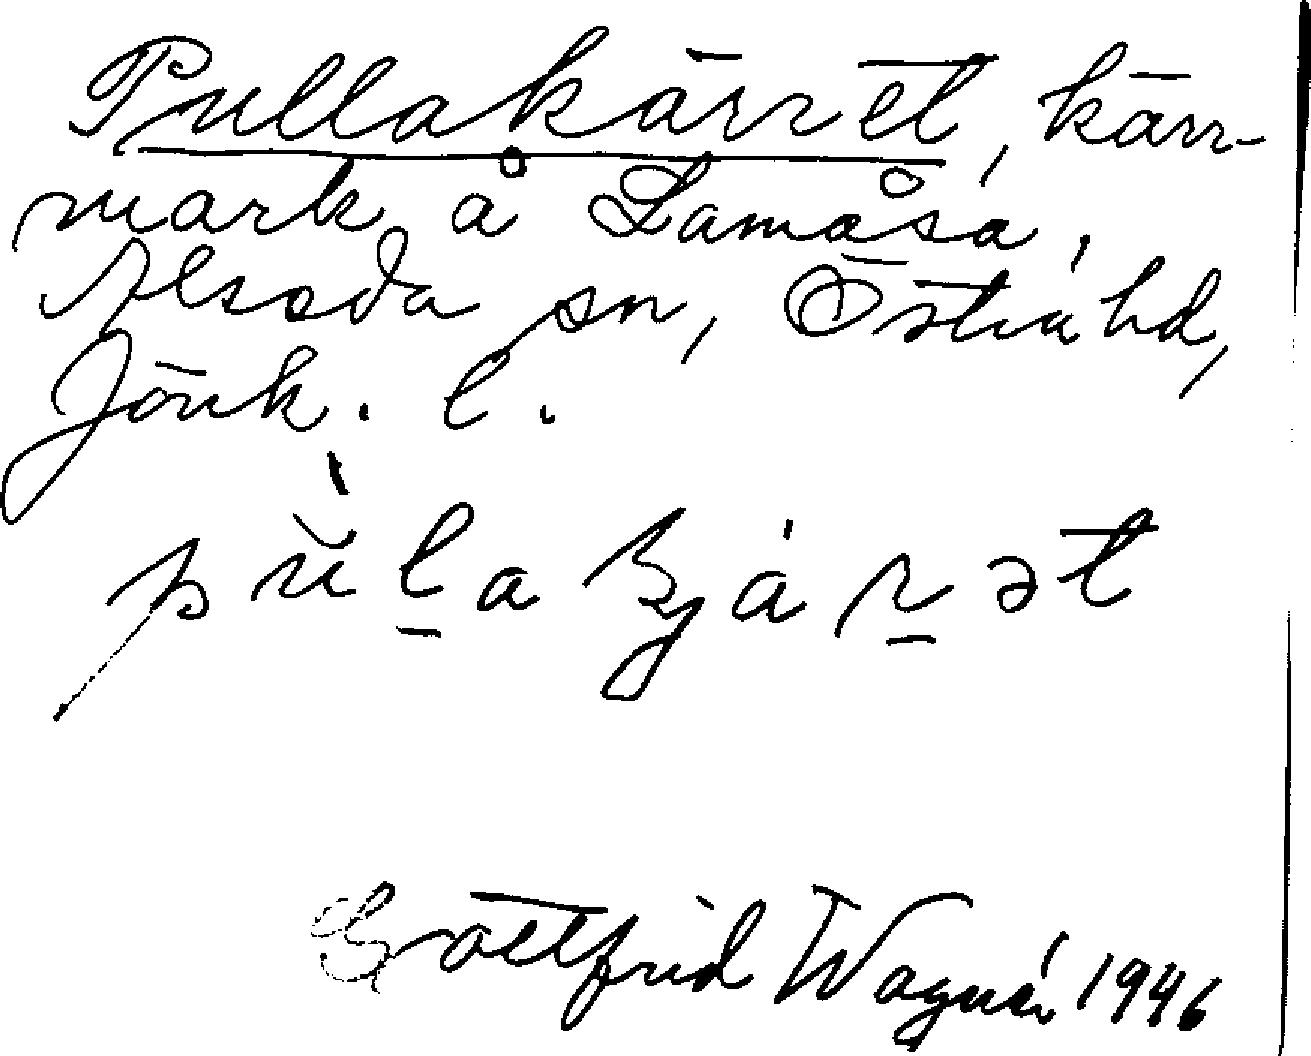 Pullakärret, kärr-
mark å Lamåsa,
Alseda sn, Östra hd,
Jönk. l.
pŭ̀l̠akjár̠ət
Gottfrid Wagnér 1946